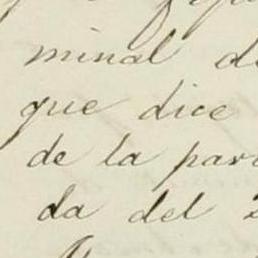 minal d
que dice
de la par
da del